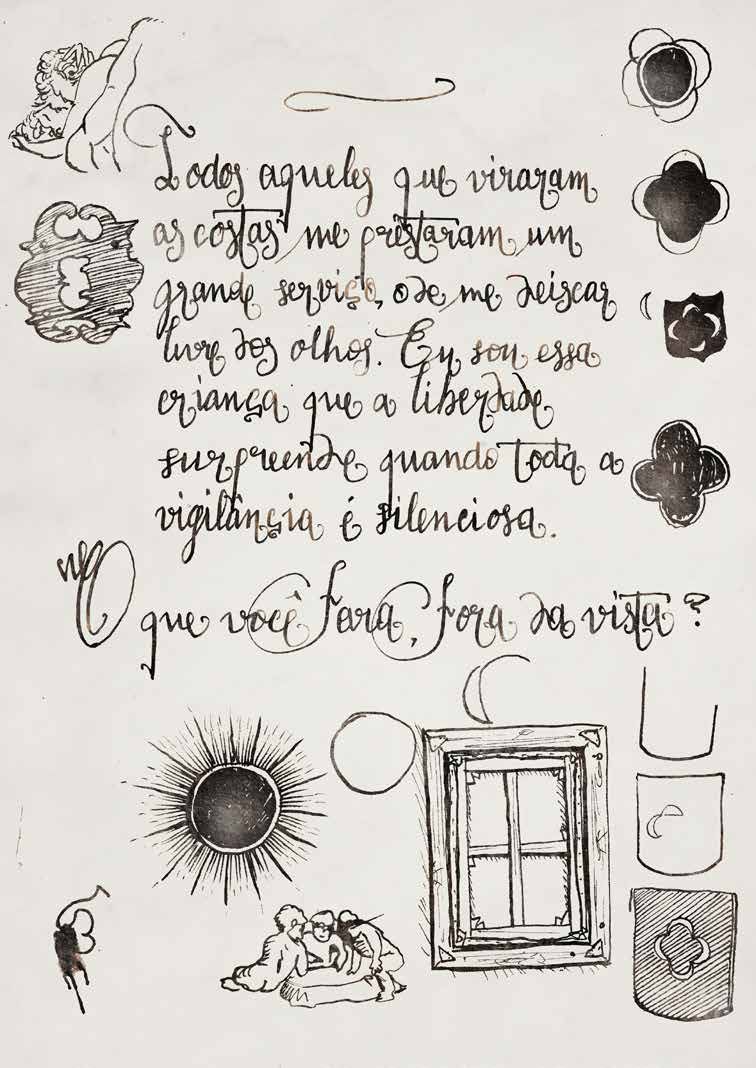 Todos aqueles que viraram
as costas me prestaram um
grande serviço, o de me deixar
livre dos olhos. Eu sou essa
criança que a liberdade
surpreende quando toda a
vigilância é silenciosa.
O
que você fará, fora da vista?